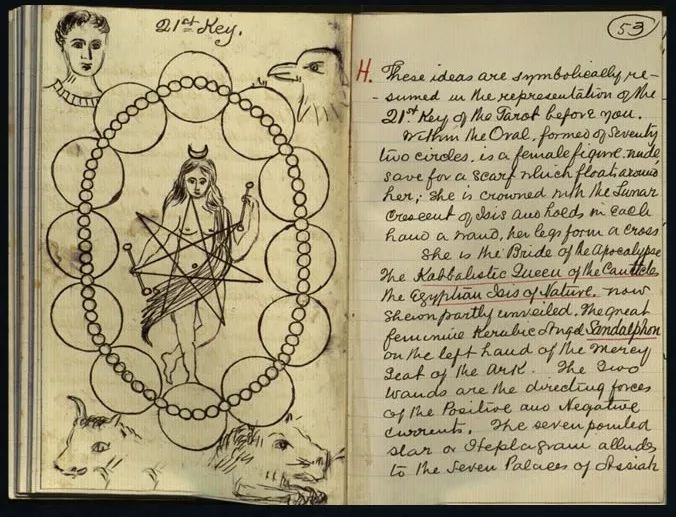 21st Key.
53
H. These ideas are symbolically re-
-sumed in the representation of the
21st Key of the Tarot before you.
Within the Oval, formed of Seventy
two circles, is a female figure, nude,
save for a scarf which floats around
her; She is crowned with the Lunar
Crescent of Isis and holds in each
hand a wand, her legs form a cross
She is the Bride of the Apocalypse
The Kabbalistic Queen of the Canticles
the Egyptian Isis of Nature. now
shewn partly unveiled, The great
feminine Kerubic Angel Sandalphon
on the left hand of the Mercy
Seat of the Ark. The two
wands are the directing forces
of the Positive and Negative
currents. The seven pointed
star or Heptagram alludes
to the Seven Palaces of Assiah